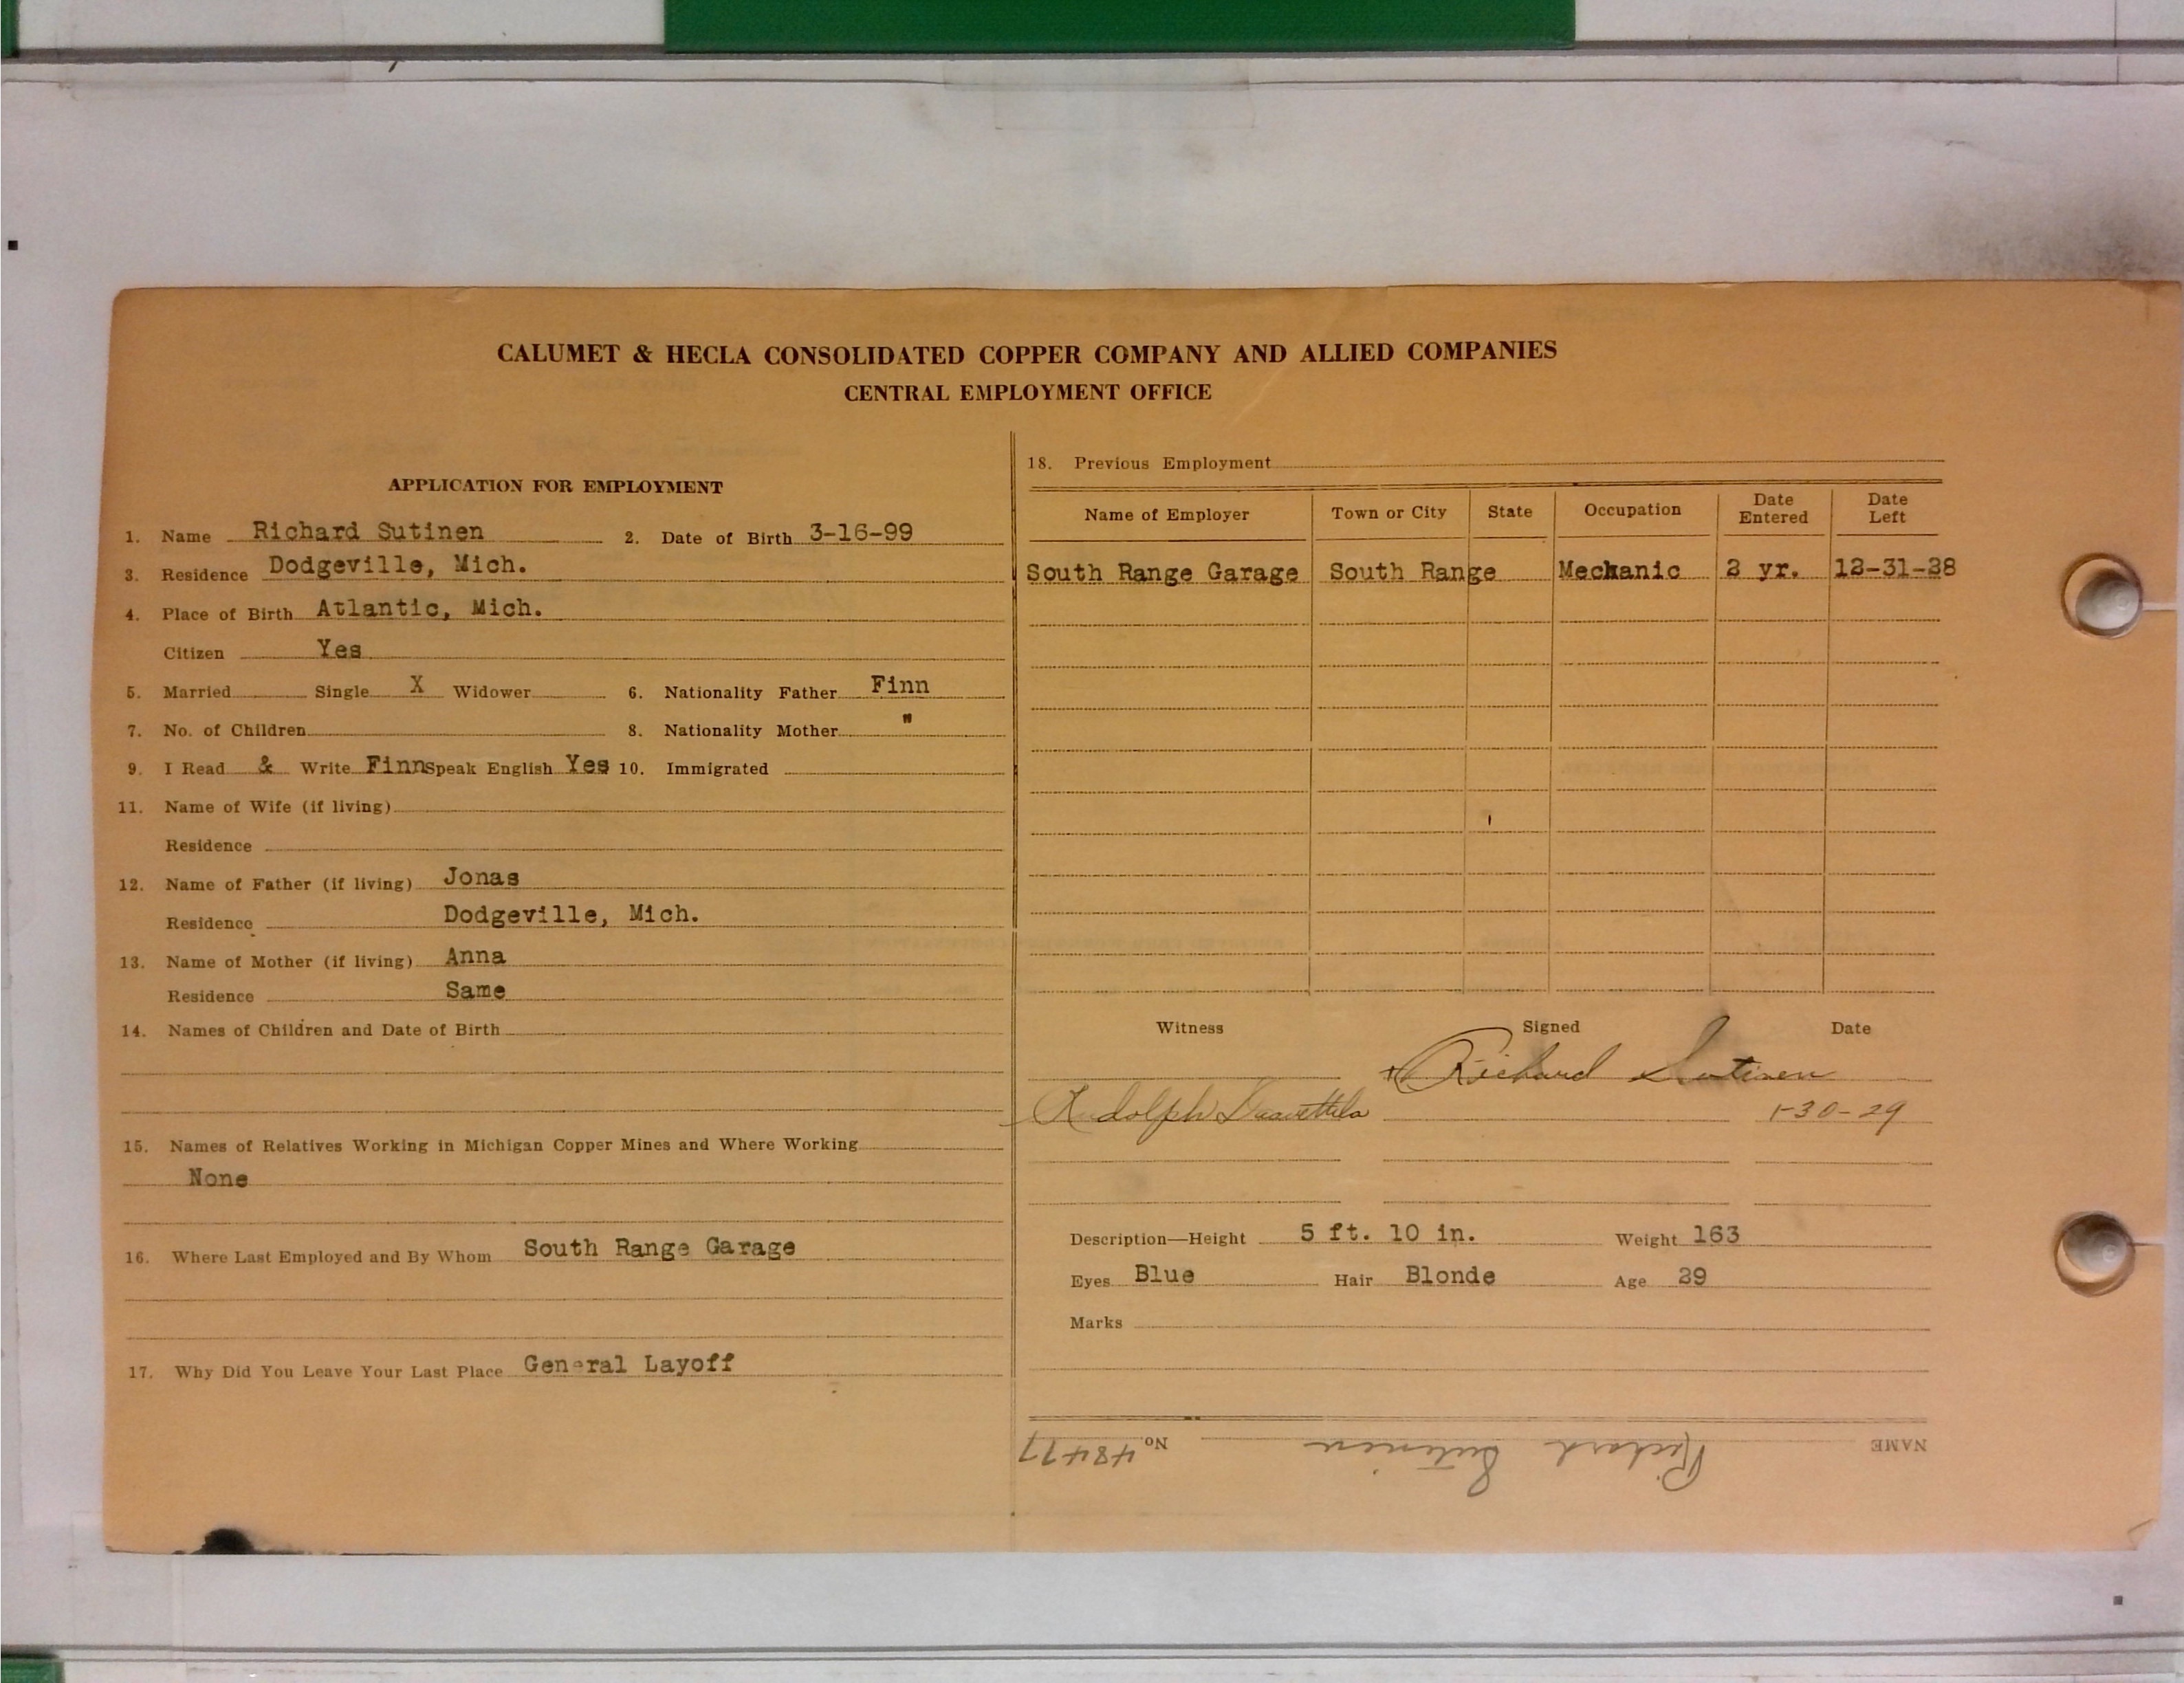 CALUMET & HECLA CONSOLIDATED COPPER COMPANY AND ALLIED COMPANIES
CENTRAL EMPLOYMENT OFFICE
APPLICATION FOR EMPLOYMENT
1. Name Richard Sutinen 2. Date of Birth 3-16-99
3. Residence Dodgeville, Mich.
4. Place of Birth Atlantic, Mich.
Citizen Yes
5. Married Single X Widower 6. Nationality Father Finn
7. No. of Children 8. Nationality Mother "
9. I Read & Write Finn Speak English Yes 10. Immigrated
11. Name of Wife (if living)
Residence
12. Name of Father (if living) Jonas
Residence Dodgeville, Mich.
13. Name of Mother (if living) Anna
Residence Same
14. Names of Children and Date of Birth
15. Names of Relatives Working in Michigan Copper Mines and Where Working
None
16. Where Last Employed and By Whom South Range Garage
17. Why Did You Leave Your Last Place General Layoff
18. Previous Employment
Name of Employer Town or City State Occupation Date Entered Date Left
South Range Garage South Range Mechanic 2 yr. 12-31-28
Witness Signed Date
Richard Sutinen
Rudolph 1-30-29
Description—Height 5 ft. 10 in. Weight 163
Eyes Blue Hair Blonde Age 29
Marks
NAME Richard Sutinen No. 48477